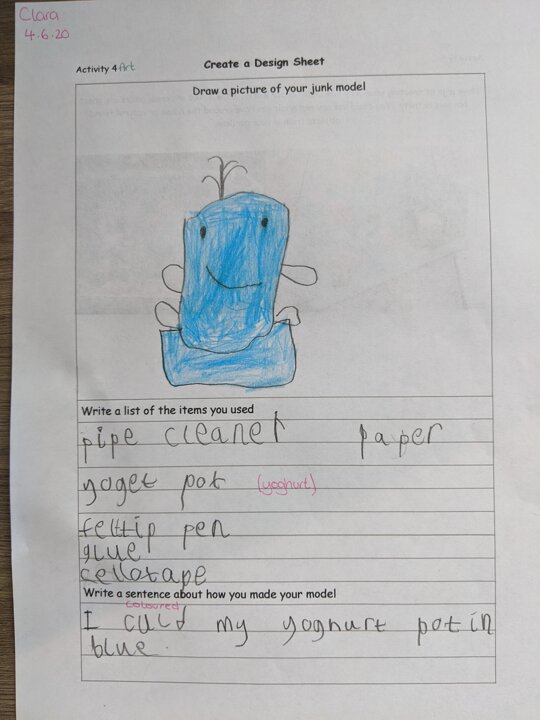 Clara
4.6.20
Activity 4 Art
Create a Design Sheet
Draw a picture of your junk model
Write a list of the items you used
pipe cleaner paper
yoget pot (yoghurt)
felttip pen
glue
cellotape
Write a sentence about how you made your model
coloured
I culd my yoghurt pot in
blue.